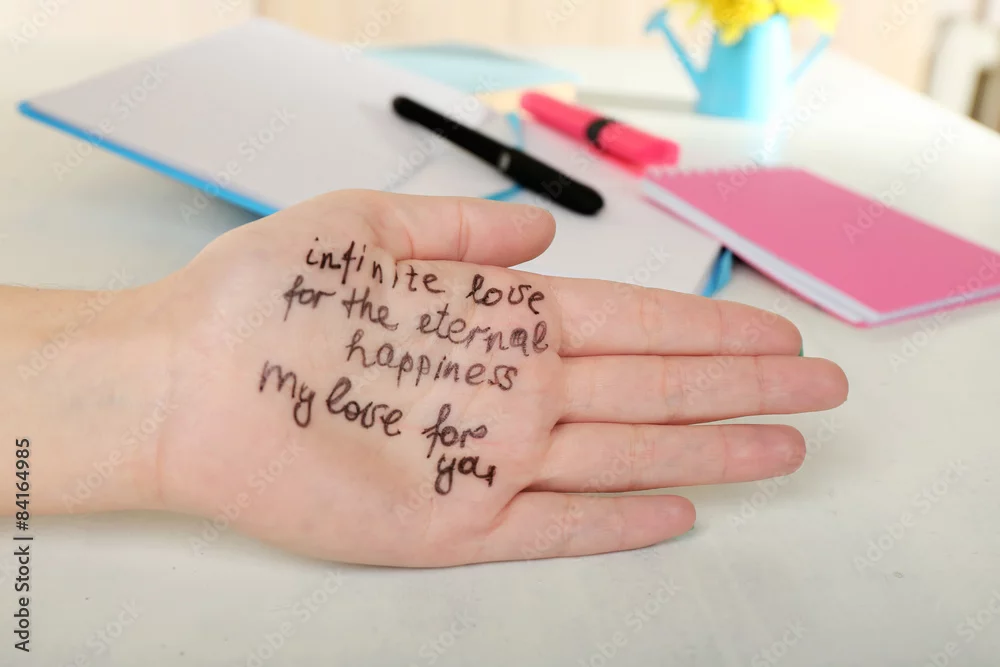 infinite love
for the eternal
happiness
My love for
you
Adobe Stock | #84164985